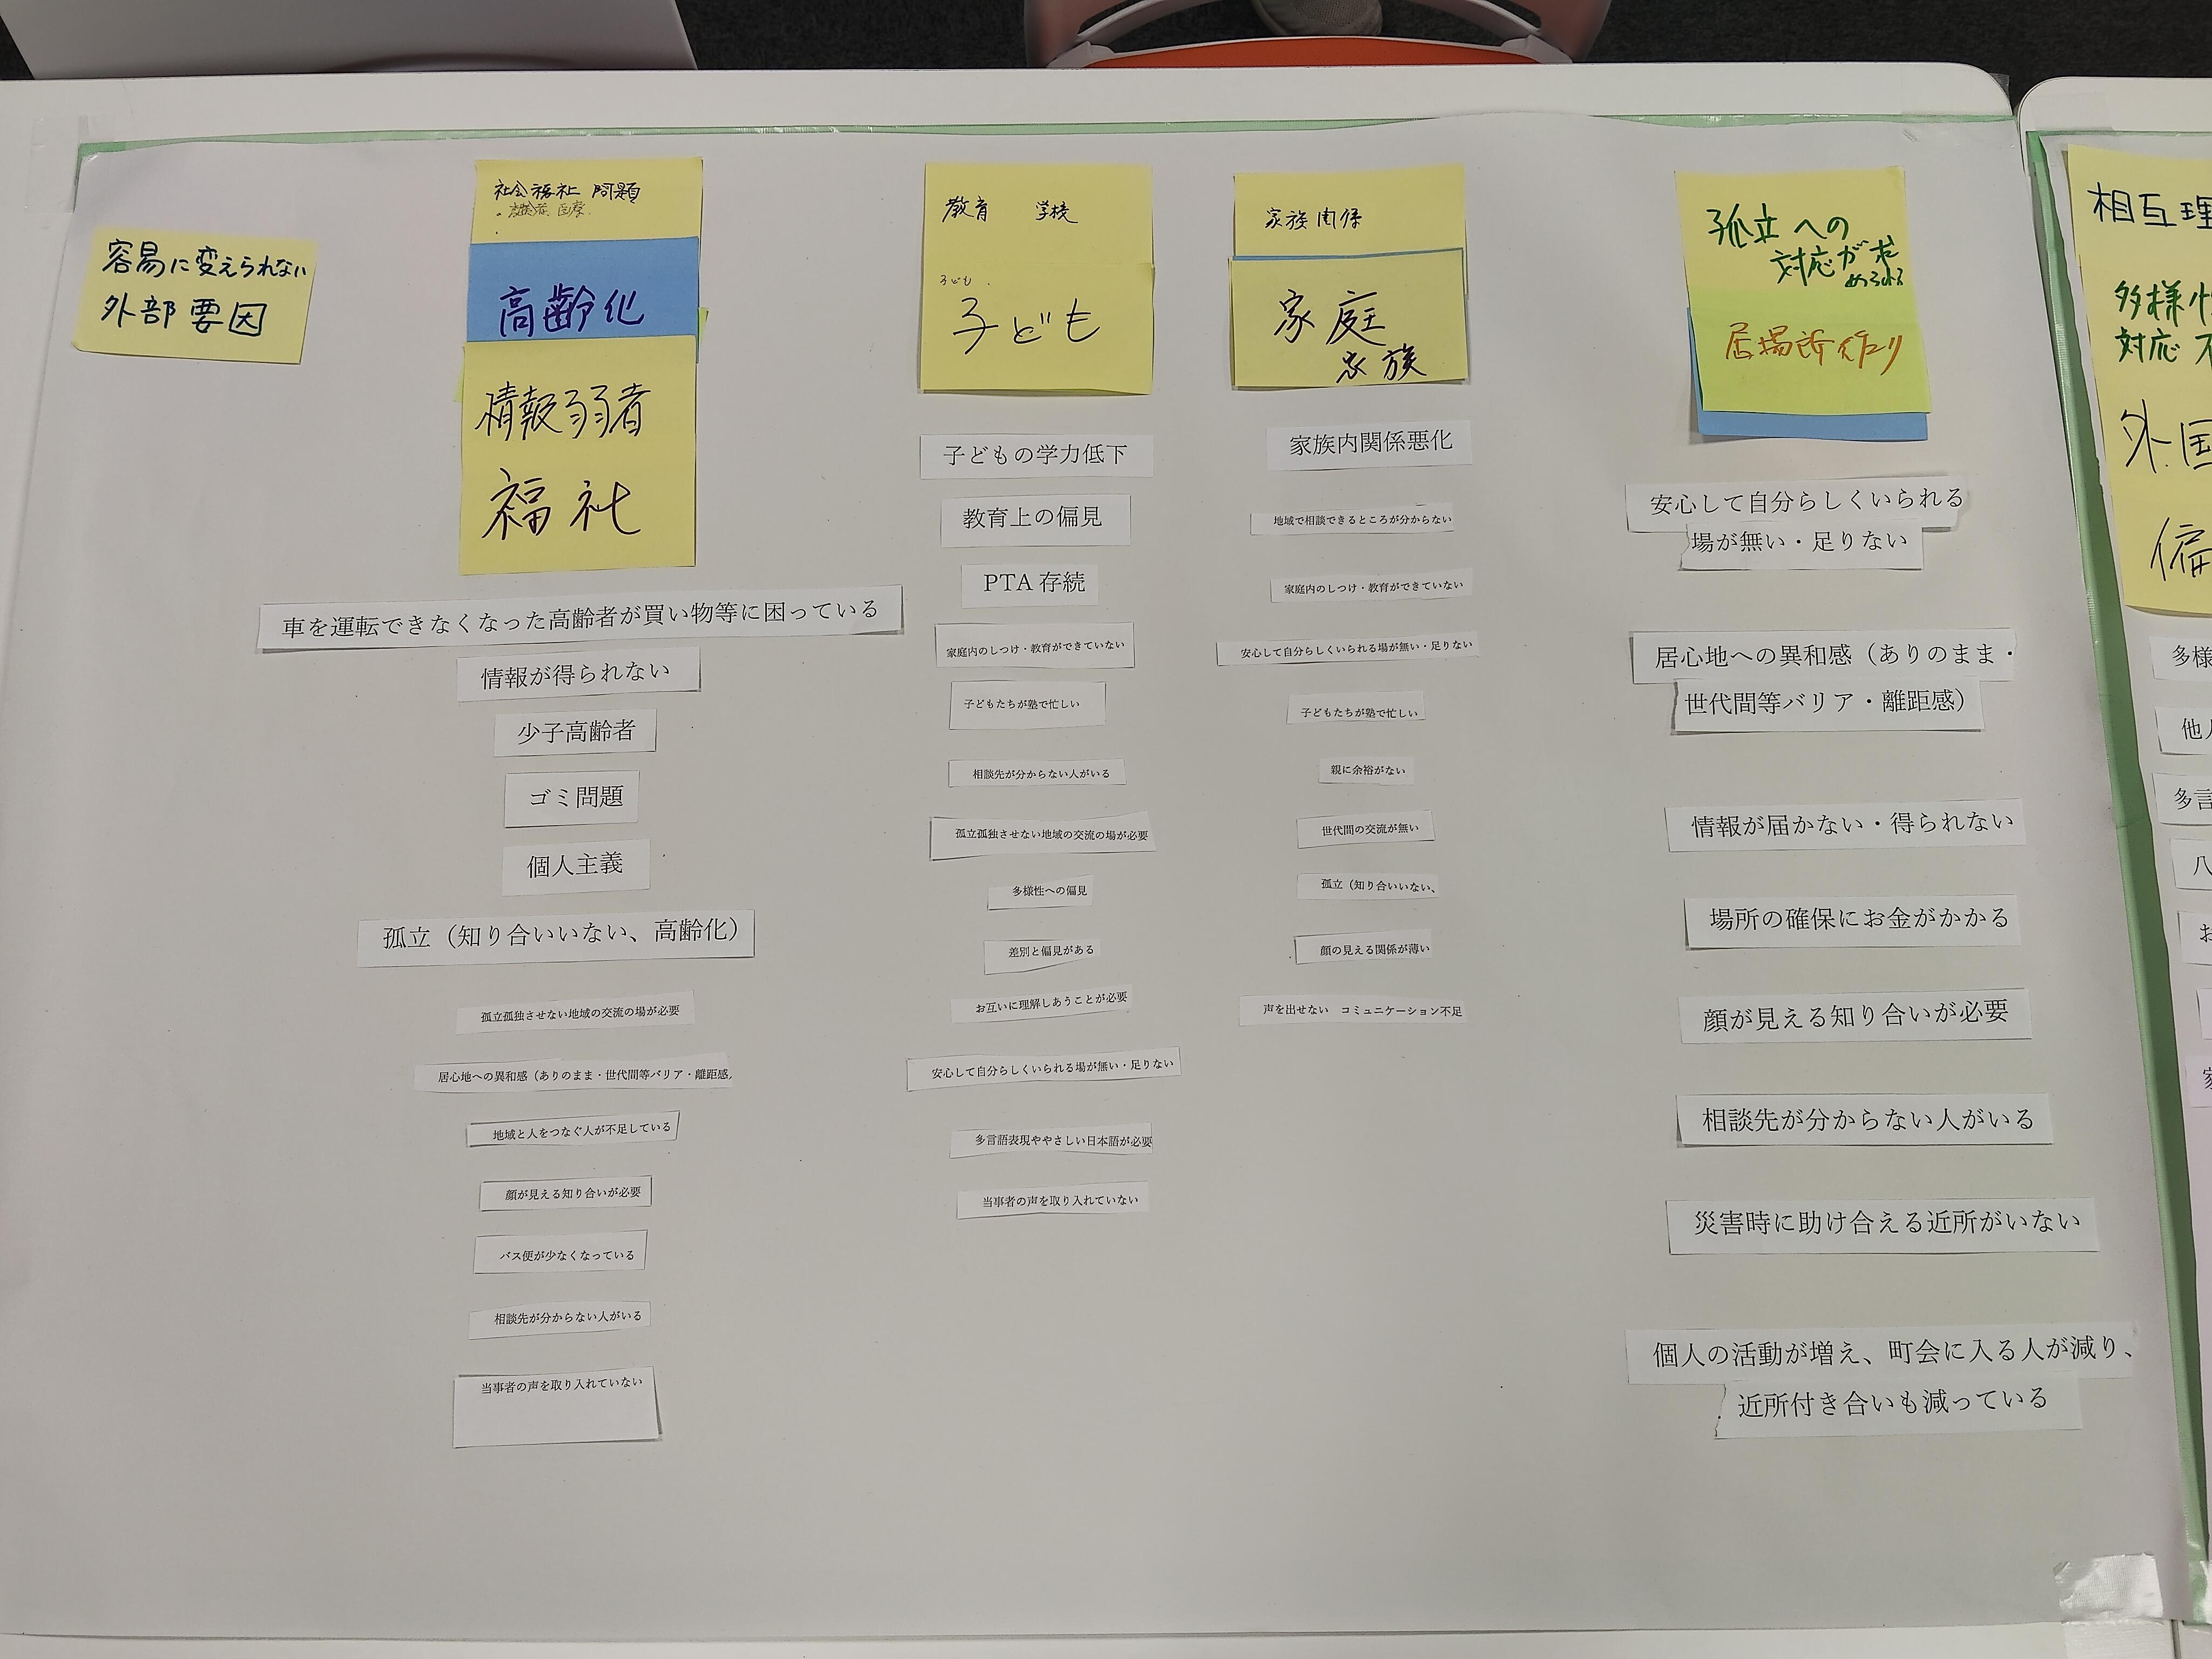 容易に変えられない
外部要因
社会福祉 問題
高齢化
情報弱者
福祉
車を運転できなくなった高齢者が買い物等に困っている
情報が得られない
少子高齢者
ゴミ問題
個人主義
孤立（知り合いいない、高齢化）
孤立孤独させない地域の交流の場が必要
居心地への異和感（ありのまま・世代間等バリア・離距感
地域と人をつなぐ人が不足している
顔が見える知り合いが必要
バス便が少なくなっている
相談先が分からない人がいる
当事者の声を取り入れていない
教育 学校
子ども
子ども
子どもの学力低下
教育上の偏見
PTA 存続
家庭内のしつけ・教育ができていない
子どもたちが塾で忙しい
相談先が分からない人がいる
孤立孤独させない地域の交流の場が必要
多様性への偏見
差別と偏見がある
お互いに理解しあうことが必要
安心して自分らしくいられる場が無い・足りない
多言語表現ややさしい日本語が必要
当事者の声を取り入れていない
家族関係
家庭
家族
家族内関係悪化
地域で相談できるところが分からない
家庭内のしつけ・教育ができていない
安心して自分らしくいられる場が無い・足りない
子どもたちが塾で忙しい
親に余裕がない
世代間の交流が無い
孤立（知り合いいない、
顔の見える関係が薄い
声を出せない　コミュニケーション不足
孤立への
対応が求
められる
居場所作り
安心して自分らしくいられる
場が無い・足りない
居心地への異和感（ありのまま・
世代間等バリア・離距感）
情報が届かない・得られない
場所の確保にお金がかかる
顔が見える知り合いが必要
相談先が分からない人がいる
災害時に助け合える近所がいない
個人の活動が増え、町会に入る人が減り、
近所付き合いも減っている
相互理
多様性
対応
外国
偏
多様
他人
多言
八
お